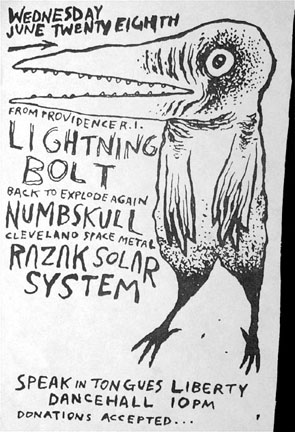 WEDNESDAY
JUNE TWENTY EIGHTH
FROM PROVIDENCE R.I.
LIGHTNING
BOLT
BACK TO EXPLODE AGAIN
NUMBSKULL
CLEVELAND SPACE METAL
RAZAK SOLAR
SYSTEM
SPEAK IN TONGUES LIBERTY
DANCEHALL 10PM
DONATIONS ACCEPTED...